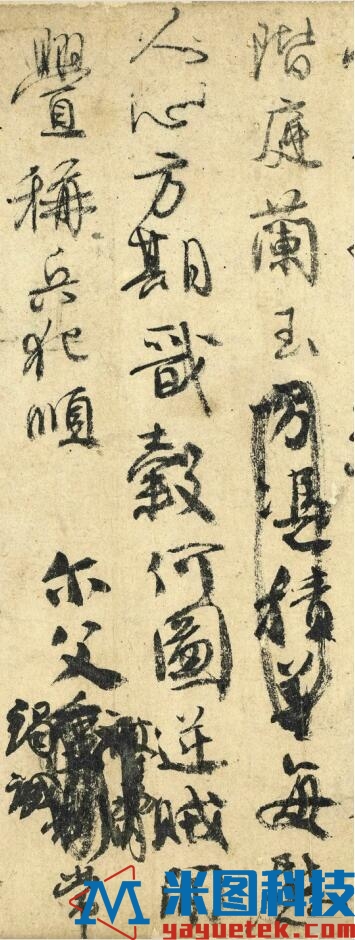 階庭蘭玉方憑積善每慰
人心方期戩穀何圖逆賊閒
釁稱兵犯順 尒父竭誠常
米图科技
yayuetek.com